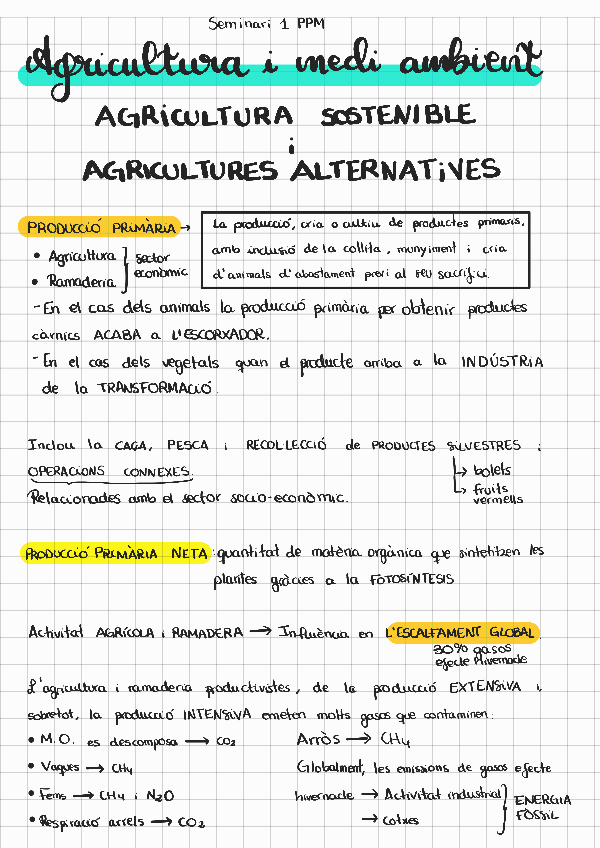 Seminari 1 PPM
Agricultura i medi ambient
AGRICULTURA SOSTENIBLE
i
AGRICULTURES ALTERNATIVES
PRODUCCIÓ PRIMÀRIA →
La producció, cria o cultiu de productes primaris,
amb inclusió de la collita, munyiment i cria
d'animals d'abastament previ al seu sacrifici.
• Agricultura
• Ramaderia
sector
econòmic
- En el cas dels animals la producció primària per obtenir productes
càrnics ACABA a L'ESCORXADOR.
- En el cas dels vegetals quan el producte arriba a la INDÚSTRIA
de la TRANSFORMACIÓ.
Inclou la CAÇA, PESCA i RECOL·LECCIÓ de PRODUCTES SILVESTRES i
OPERACIONS CONNEXES.
↳ bolets
↳ fruits
vermells
Relacionades amb el sector socio-econòmic.
PRODUCCIÓ PRIMÀRIA NETA: quantitat de matèria orgànica que sintetitzen les
plantes gràcies a la FOTOSÍNTESIS
Activitat AGRÍCOLA i RAMADERA → Influència en L'ESCALFAMENT GLOBAL
30% gasos
efecte hivernacle
L'agricultura i ramaderia productivistes, de la producció EXTENSIVA i
sobretot, la producció INTENSIVA emeten molts gasos que contaminen:
• M.O. es descomposa → CO2
• Vaques → CH4
• Fems → CH4 i N2O
• Respiració arrels → CO2
Arròs → CH4
Globalment, les emissions de gasos efecte
hivernacle → Activitat industrial
→ cotxes
ENERGIA
FÒSSIL